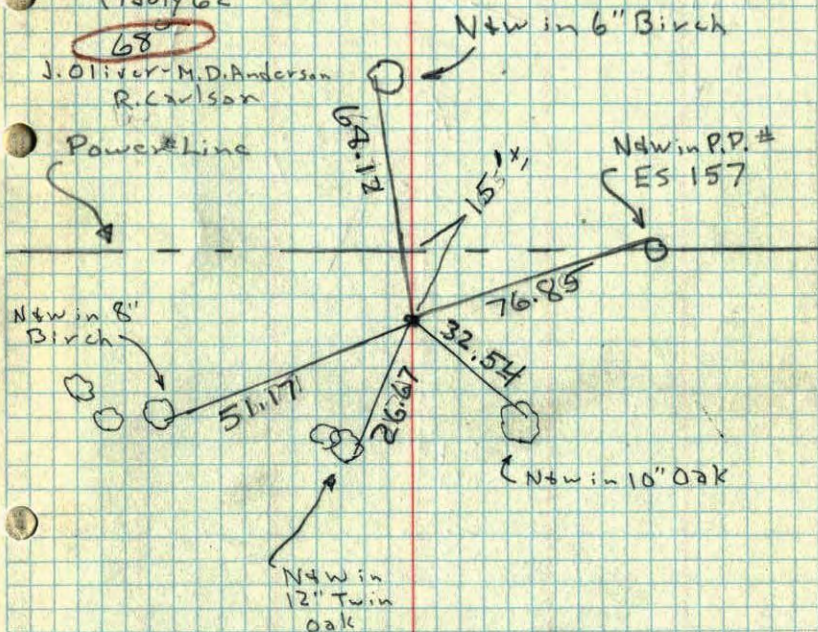 July 62
68°
J. Oliver - M.D. Anderson
R. Carlson
N&W in 6" Birch
Power Line
64.12
15'±
N&W in P.P. #
ES 157
76.85
N&W in 8"
Birch
32.54
51.17
26.67
N&W in 10" Oak
N&W in
12" Twin
Oak